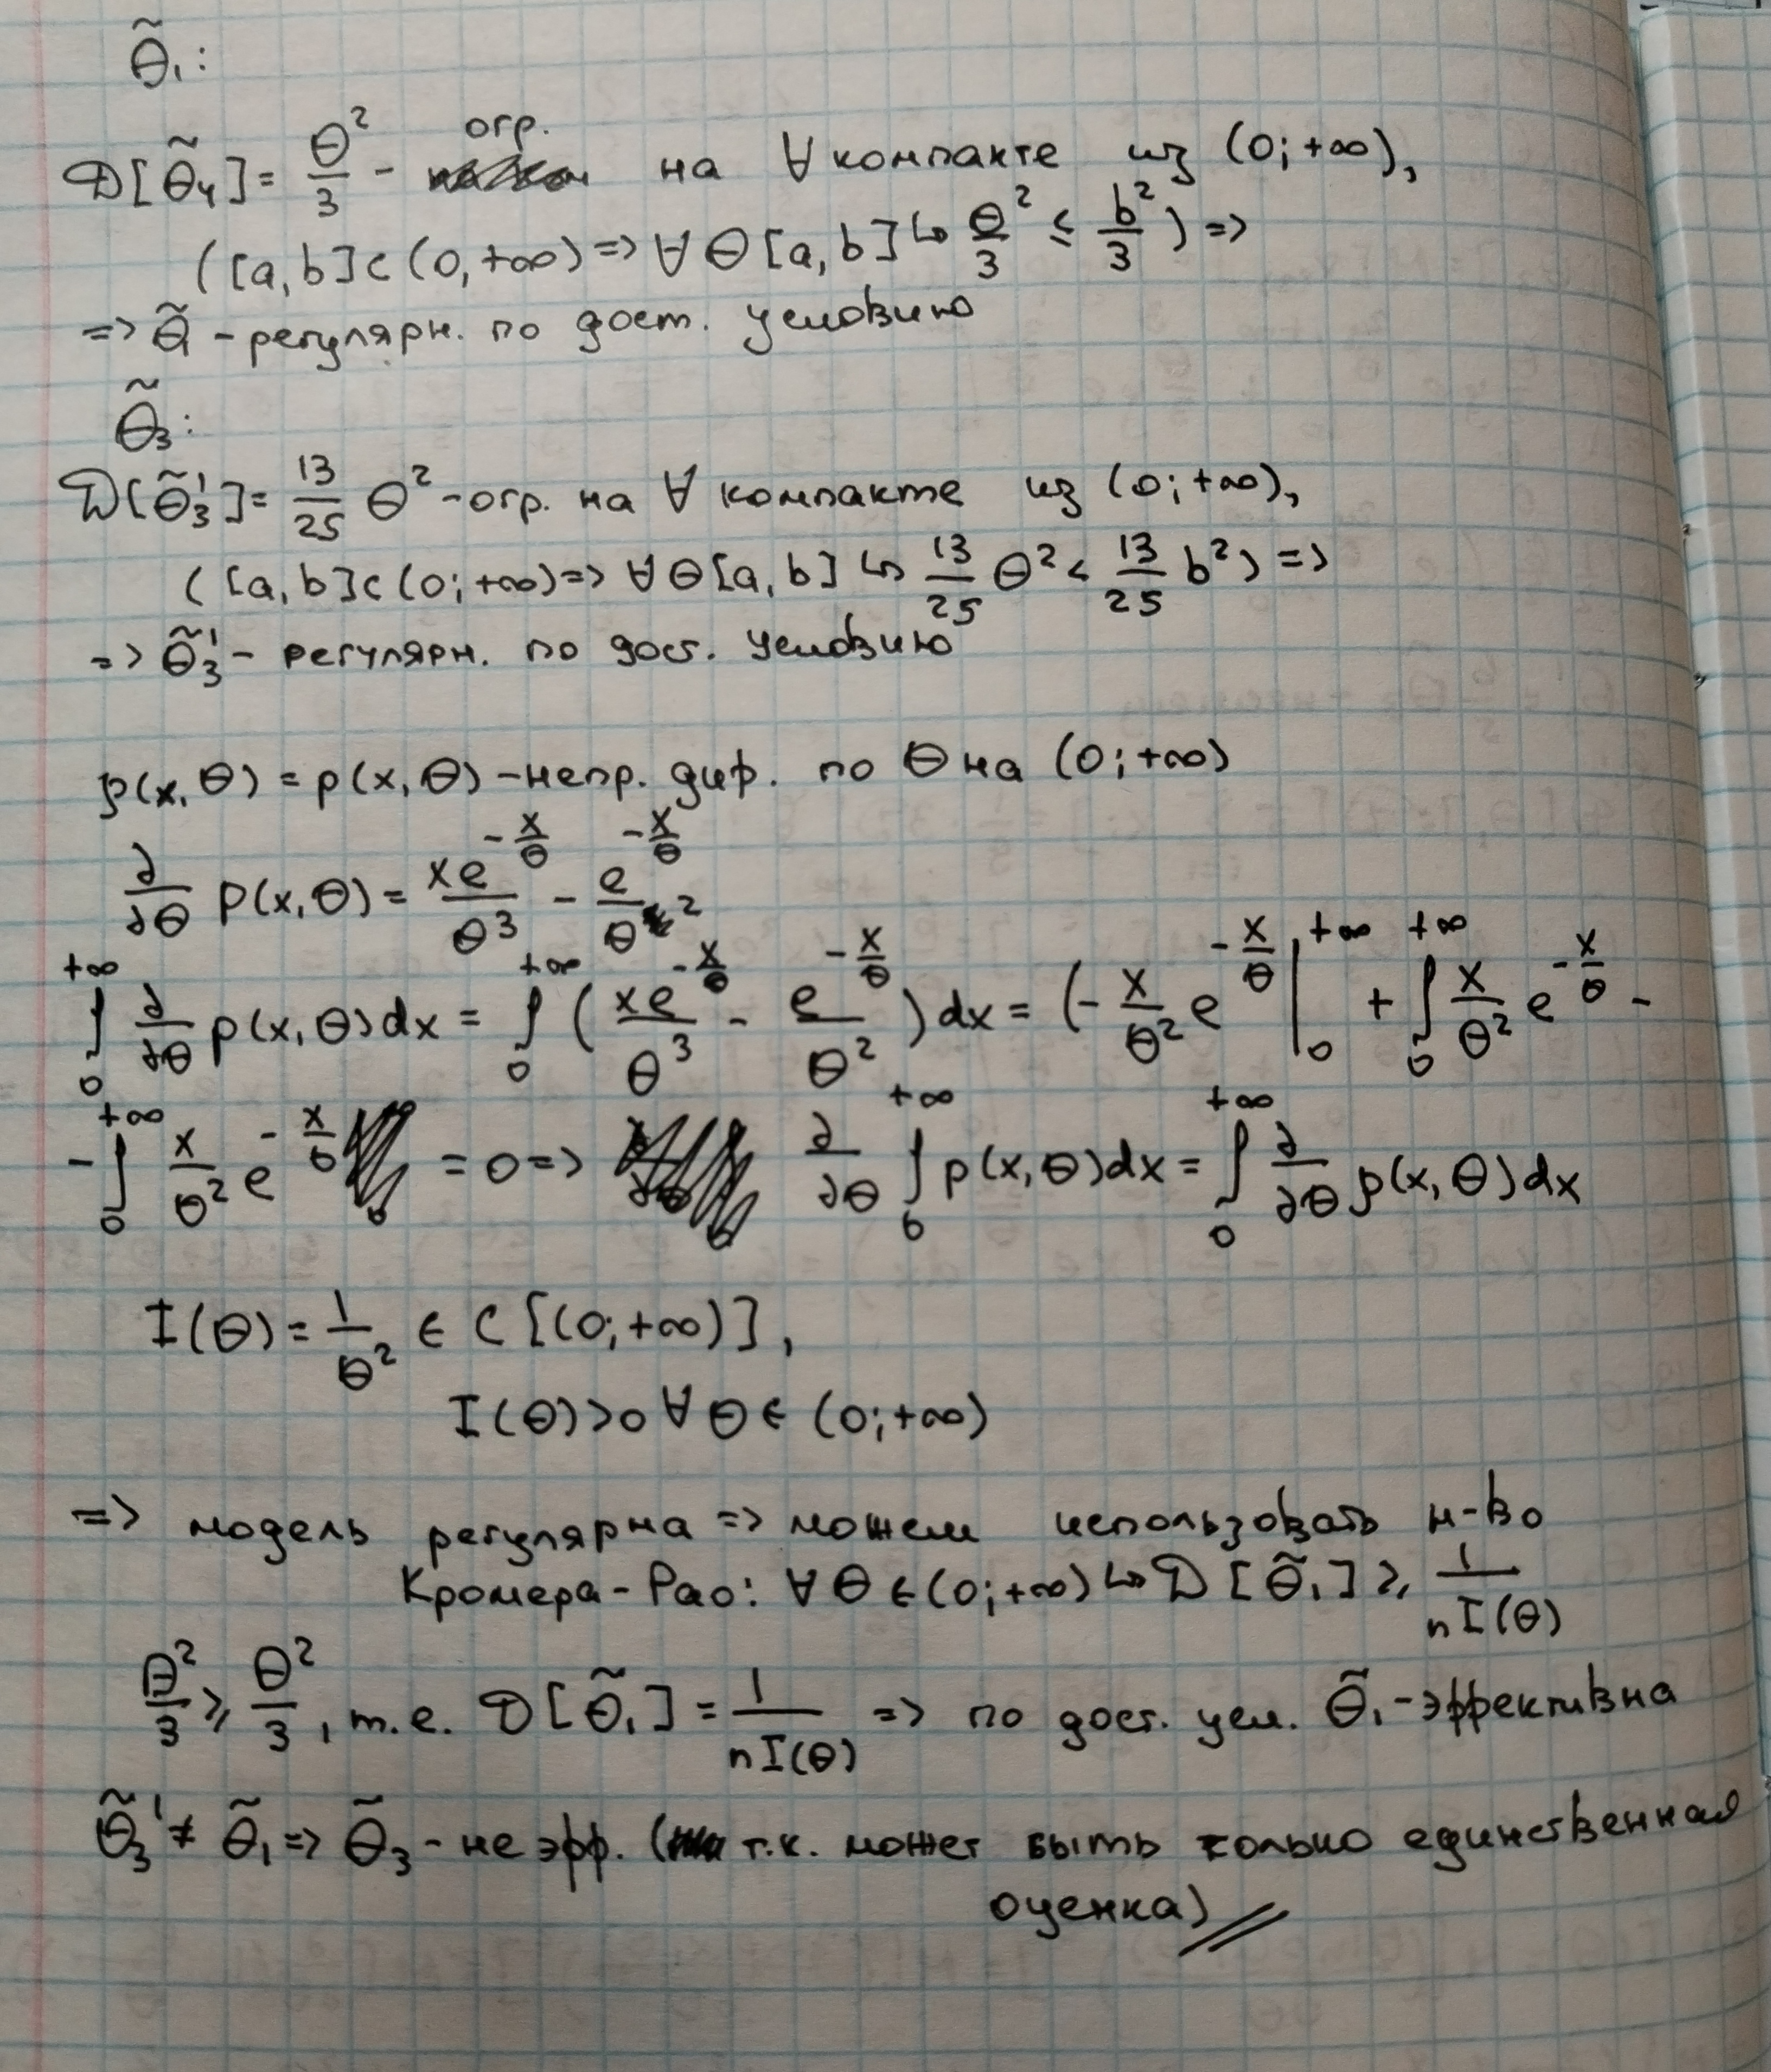 θ̃₁:
D[θ̃₄] = θ²/3 - огр. на ∀ компакте из (0; +∞),
([a, b] ⊂ (0, +∞) => ∀ θ [a, b] ↪ θ²/3 ≤ b²/3) =>
=> θ̃ - регулярн. по дост. условию
θ̃₃:
D[θ̃₃'] = 13/25 θ² - огр. на ∀ компакте из (0; +∞),
([a, b] ⊂ (0; +∞) => ∀ θ [a, b] ↪ 13/25 θ² < 13/25 b²) =>
=> θ̃₃' - регулярн. по дост. условию
p(x, θ) = p(x, θ) - непр. диф. по θ на (0; +∞)
∂/∂θ p(x, θ) = xe^(-x/θ)/θ³ - e^(-x/θ)/θ²
∫₀^(+∞) ∂/∂θ p(x, θ) dx = ∫₀^(+∞) (xe^(-x/θ)/θ³ - e^(-x/θ)/θ²) dx = (- x/θ² e^(-x/θ) |₀^(+∞) + ∫₀^(+∞) x/θ² e^(-x/θ) -
- ∫₀^(+∞) x/θ² e^(-x/θ) = 0 => ∂/∂θ ∫₀^(+∞) p(x, θ) dx = ∫₀^(+∞) ∂/∂θ p(x, θ) dx
I(θ) = 1/θ² ∈ C[(0; +∞)],
I(θ) > 0 ∀ θ ∈ (0; +∞)
=> модель регулярна => можем использовать н-во
Кромера-Рао: ∀ θ ∈ (0; +∞) ↪ D[θ̃₁] ≥ 1/nI(θ)
θ²/3 ≥ θ²/3, т.е. D[θ̃₁] = 1/nI(θ) => по дост. усл. θ̃₁ - эффективна
θ̃₃' ≠ θ̃₁ => θ̃₃ - не эфф. (т.к. может быть только единственная
оценка)